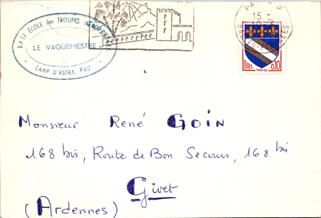 BASE ECOLE des TROUPES AEROPORTEES
LE VAGUEMESTRE
CAMP D'ASTRA. PAU
15 -
TROYES
0,10
Monsieur René GOIN
168 bis, Route de Bon Secours, 168 bis
Givet
(Ardennes)